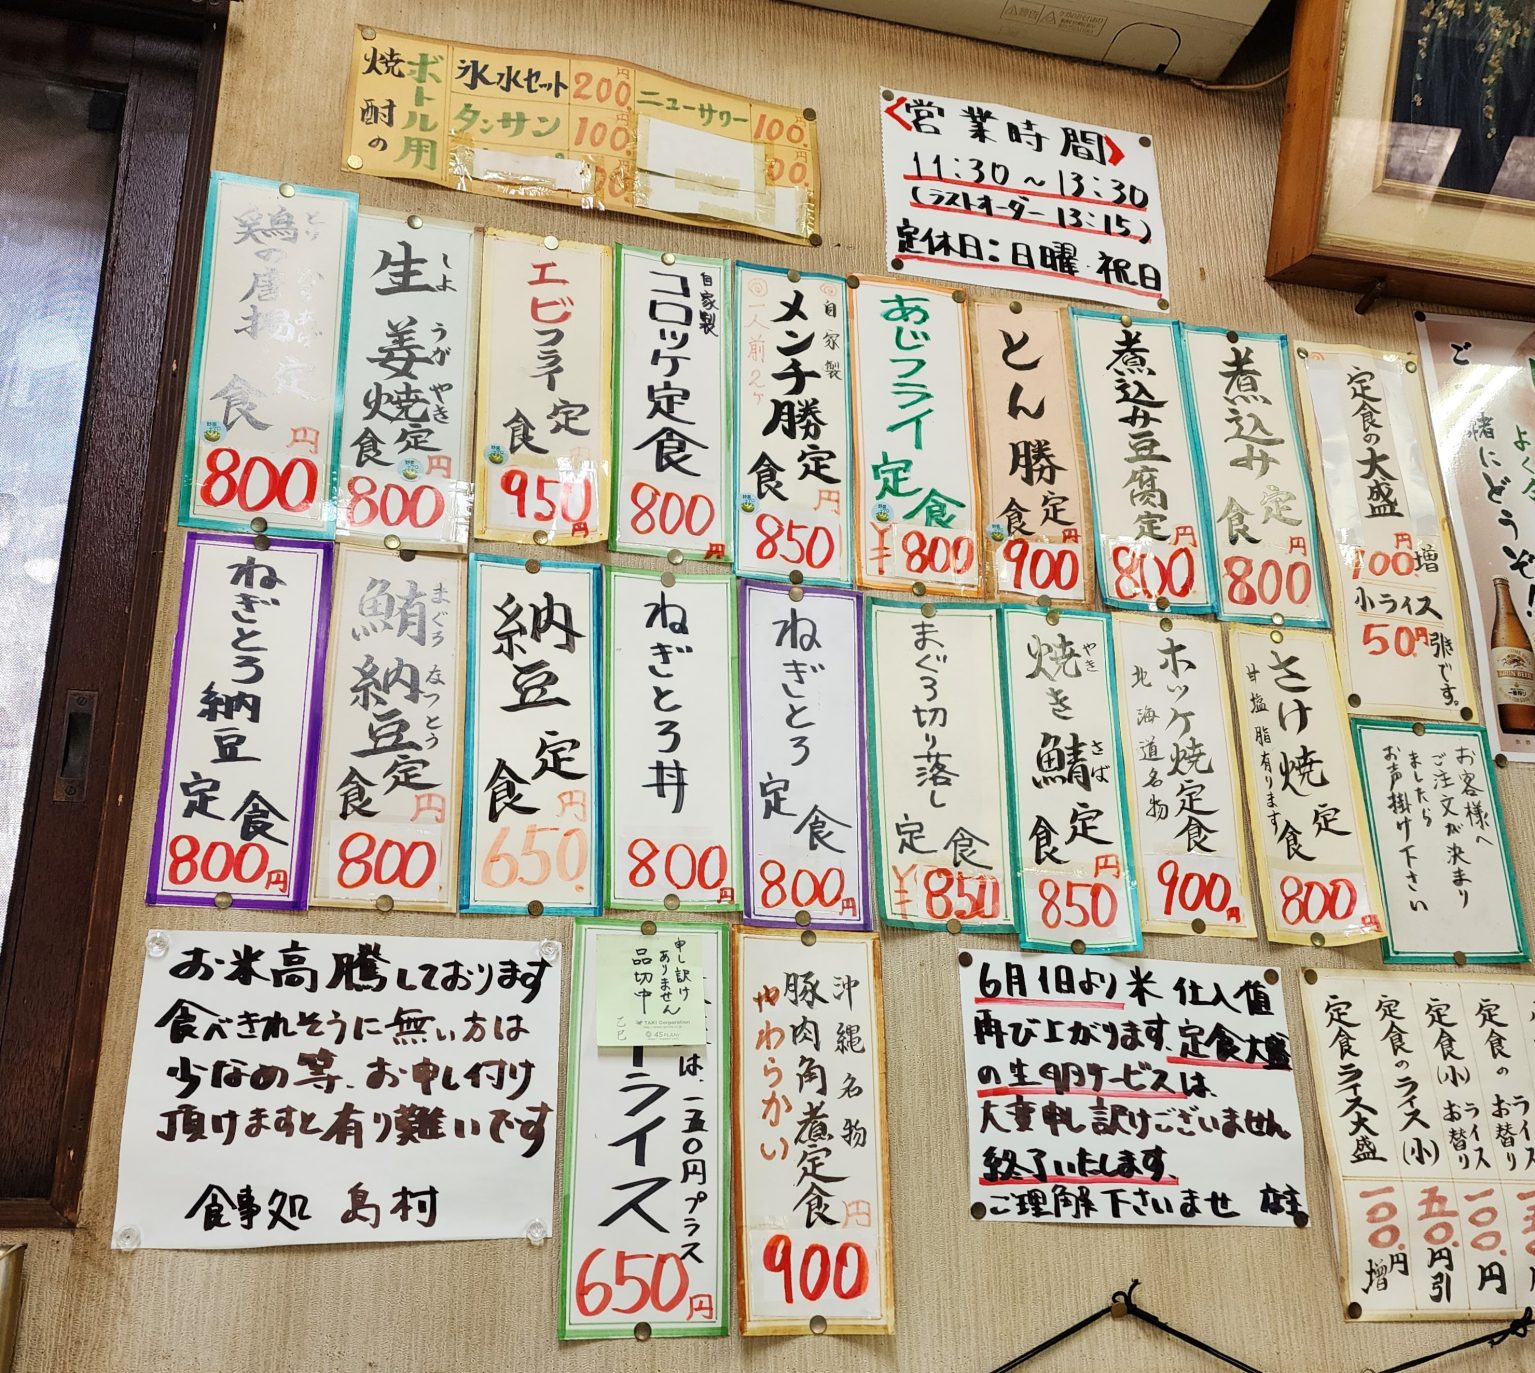 焼酎の
ボトル用
氷水セット 200円
タンサン 100.
ニューサワー 100.
<営業時間>
11:30〜13:30
(ラストオーダー13:15)
定休日:日曜・祝日
鶏の唐揚定食
とり
800円
生姜焼定食
しようがやき
800円
エビフライ定食
950円
自家製
コロッケ定食
800円
自家製
メンチ勝定食
一人前2ケ
850円
あじフライ定食
¥800
とん勝定食
900円
煮込み豆腐定
800円
煮込み定食
800円
定食の大盛
100円増
小ライス
50円引きです。
ねぎとろ納豆定食
800円
鮪納豆定食
まぐろなつとう
800円
納豆定食
650円
ねぎとろ丼
800円
ねぎとろ定食
800円
まぐろ切り落し定食
¥850
焼き鯖定食
やき
さば
850円
ホッケ焼定食
北海道名物
900円
さけ焼定食
甘塩脂有ります
800円
お客様へ
ご注文が決まり
ましたら
お声掛け下さい
お米高騰しております
食べきれそうに無い方は
少なめ等、お申し付け
頂けますと有り難いです
食事処 島村
申し訳け
ありません
品切中
乙巳
TAKI Corporation
ライス
は、一五〇円プラス
650円
沖縄名物
豚肉角煮定食
やわらかい
900円
6月1日より米仕入値
再び上がります。定食大盛
の生卵サービスは、
大変申し訳けございません
終了いたします。
ご理解下さいませ 店主
定食ライス大盛 一〇〇円増
定食のライス(小) 五〇円引
定食(小)ライスお替り 一〇〇円
定食のライスお替り